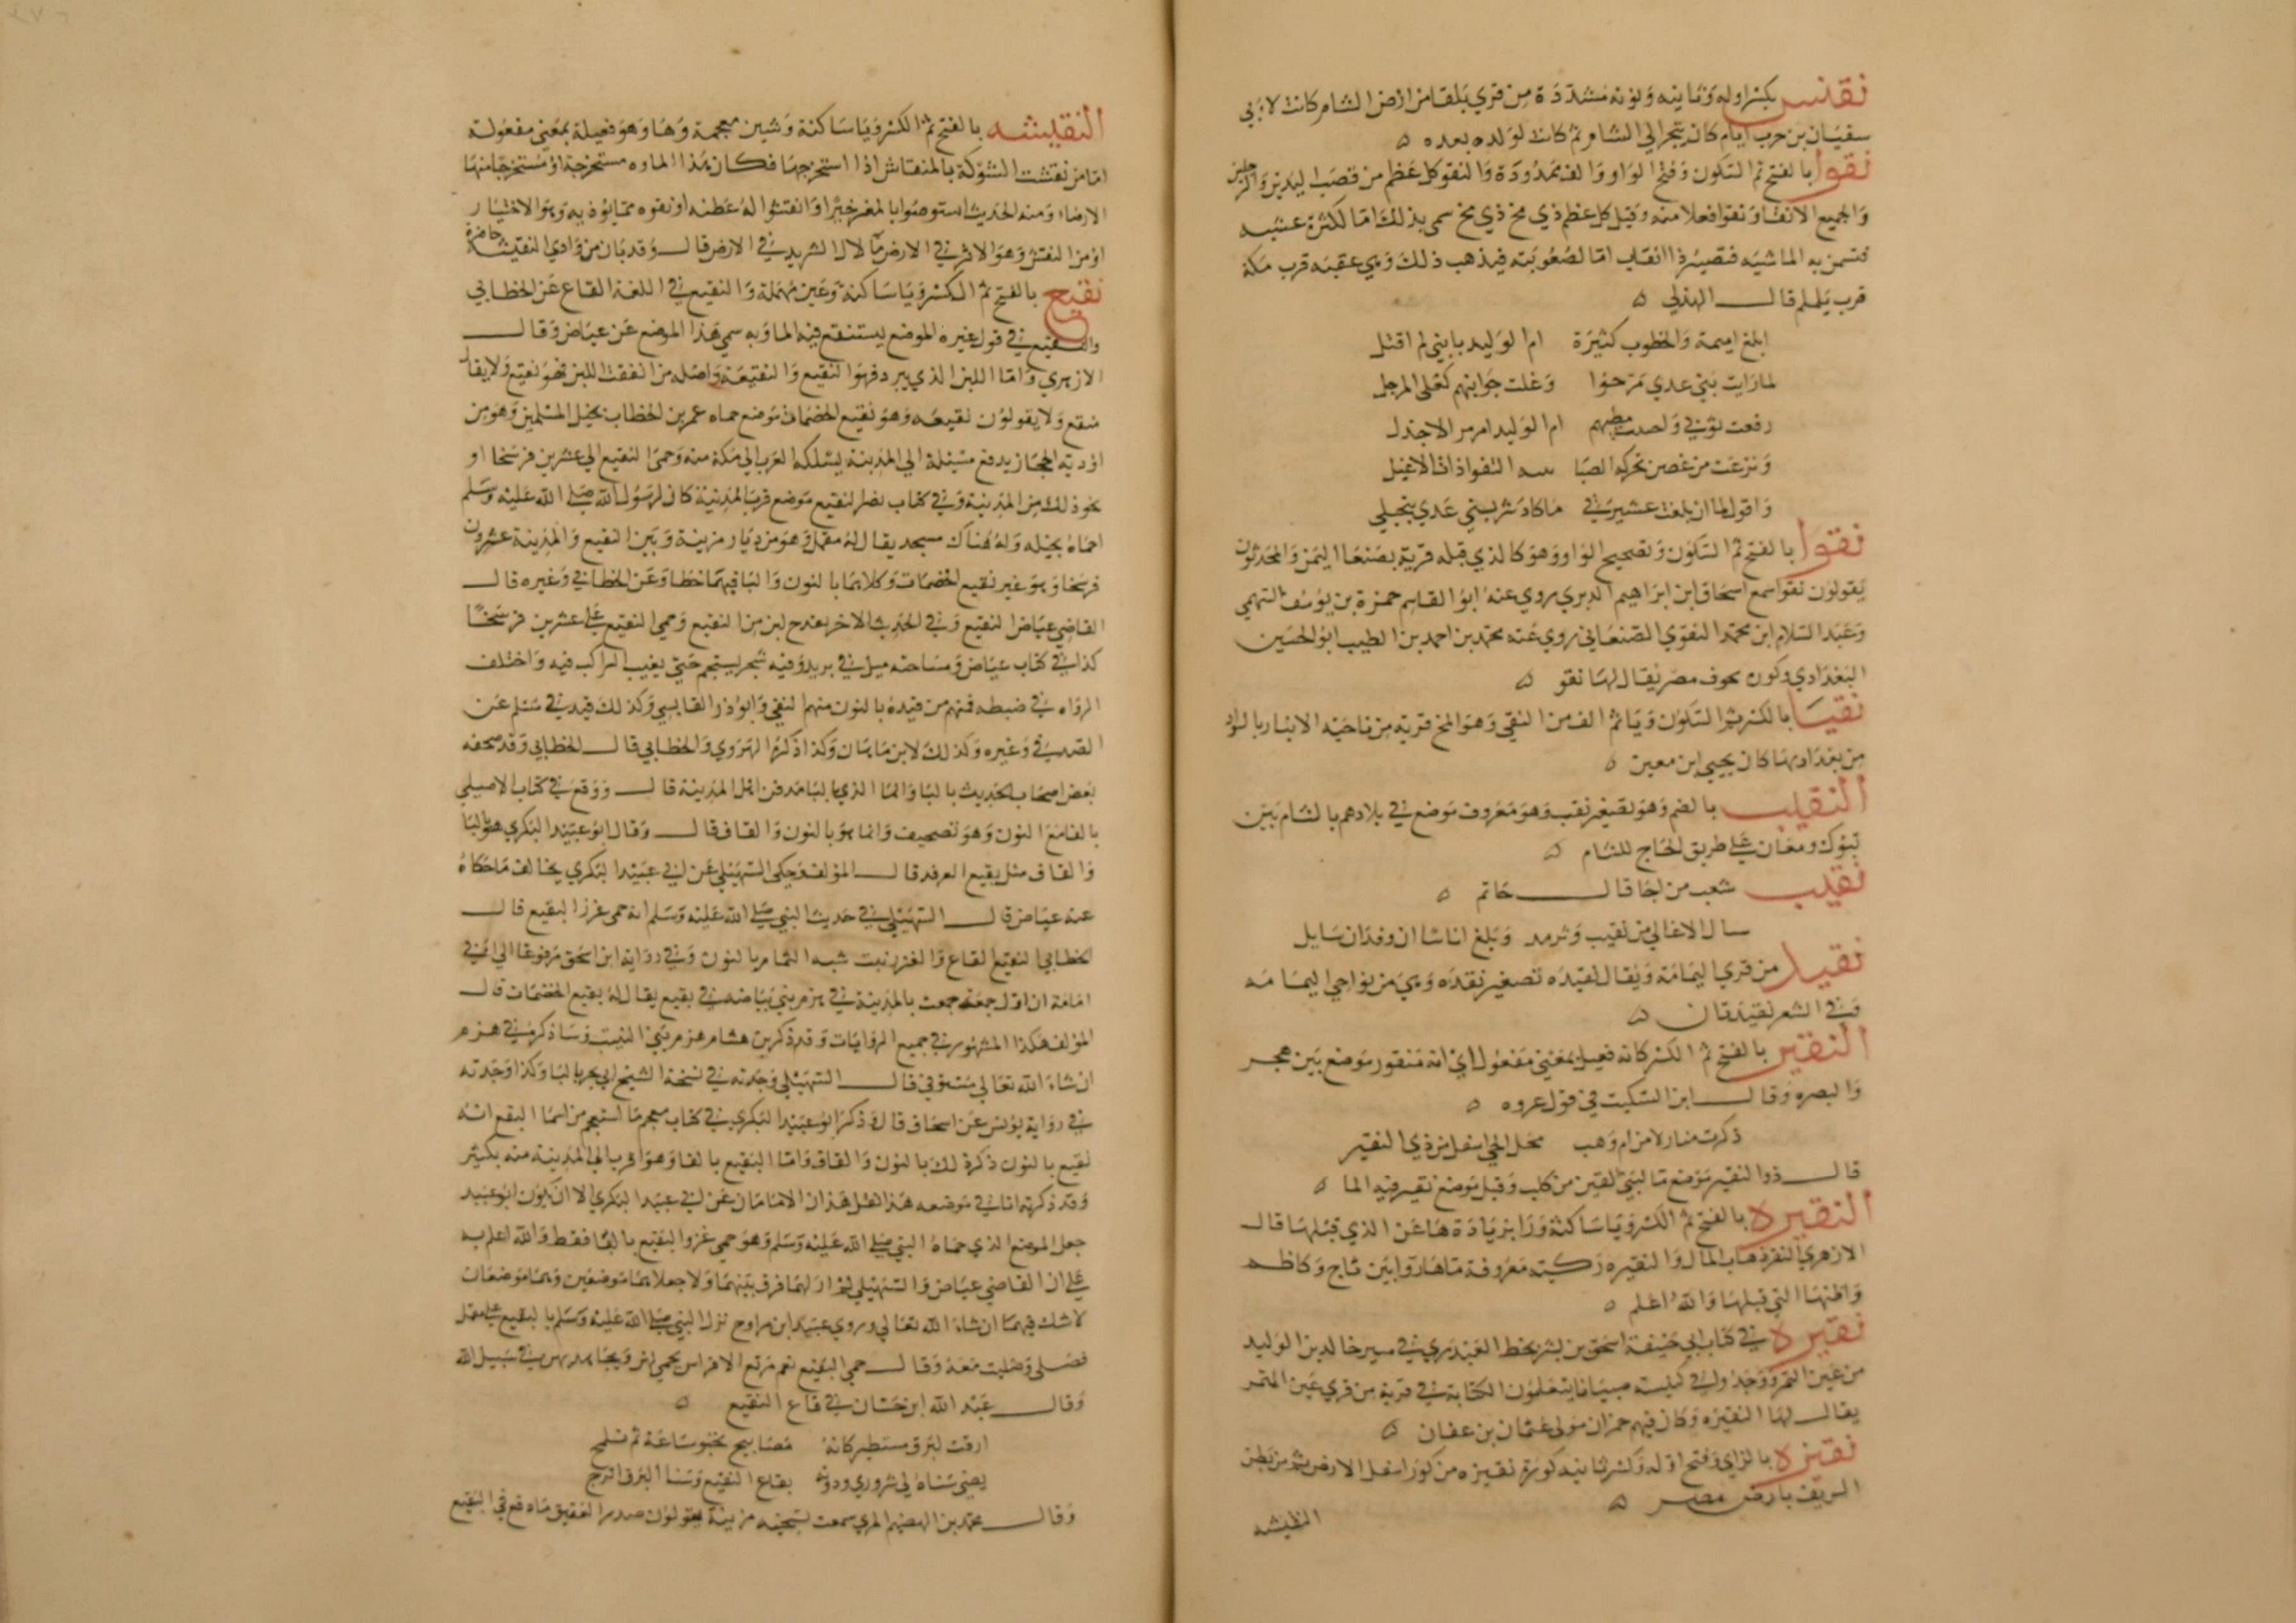 نقنس بكسر اوله وثانيه ونونه مشددة من قري بلقا من ارض الشام كانت لابي
سفيان بن حرب ايام كان يتجر الي الشام ثم كانت لولده بعده ه
نقوا بالفتح ثم السكون وفتح الواو والف ممدودة والنقو كل عظم من قصب اليدين والرجلين
والجميع الانقا ونقوا فعلا منه وقيل كل عظم ذي مخ سمي بذلك اما لكثرة عشبه
فتسمن به الماشيه فتصير ذا انقا اما لصعوبته فيذهب ذلك وهي عقبه قرب مكة
قرب يلملم قال الهذلي ه
ابلغ اميمة والخطوب كثيرة ام الوليد بانني لم اقتل
لما رايت بني عدي مرحوا وغلت جوانبهم كغلي المرجل
رفعت ثوبي ام الوليد امر مر الاجدل
ونزعت من غصن تحركه الصبا النقوا ذات الاغيل
واقول لما ان بلغت عشيرتي ما كاد شر بني عدي ينجلي
نقوا بالفتح ثم السكون وتصحيح الواو وهو كالذي قبله قرية بصنعا اليمن والمحدثون
يقولون نقوا سمع اسحاق ابن ابراهيم الدبري روي عنه ابو القاسم حمزة بن يوسف السهمي
وعبد السلام ابن محمد النقوي الصنعاني روي عنه محمد بن احمد بن الطيب ابو الحسين
البغدادي وكوره بحوف مصر يقال لها نقو ه
نقيا بالكسر ثم السكون ويا ثم الف من النقي وهو المخ قرية من ناحية الانبار بالسواد
من بغداد بها كان يحيي ابن معين ه
النقيب بالضم وهو تصغير نقب وهو معروف موضع في بلادهم بالشام بين
تبوك ومعان علي طريق الحاج للشام ه
نقيب شعب من اجا قال حاتم ه
سال الاعالي من نقيب وثرمد وبلغ اناسا ان وقدان سايل
نقيد من قري اليمامة ويقال نقيده تصغير نقده وهي من نواحي اليمامه
وفي الشعر نقيدتان ه
النقير بالفتح ثم الكسر كانه فعيل بمعني مفعول اي انه منقور موضع بين هجر
والبصره وقال ابن السكيت في قول عروه ه
ذكرت منازلا من ام وهب محل الحي اسفل من ذي النقير
قال ذو النقير موضع ما لبني القين من كلب وقيل موضع نقير فيه الما ه
النقيره بالفتح ثم الكسر ويا ساكنة ورا بزيادة ها عن الذي قبلها قال
الازهري النقر ذهاب المال والنقيره ركية معروفة ماها روا بين ثاج وكاظمه
واظنها التي قبلها والله اعلم ه
نقيره في كتاب ابي حنيفة اسحق بن بشر بخط العبدري في مسير خالد بن الوليد
من عين التمر ووجدوا في كنيسه صبيانا يتعلمون الكتابة في قرية من قري عين التمر
يقال لها النقيره وكان فيهم حمران مولي عثمان بن عفان ه
نقيزه بالزاي وفتح اوله وكسر ثانيه كورة نقيزه من كور اسفل الارض ثم من بطن
الريف بارض مصر ه
النقيشه
النقيشه بالفتح ثم الكسر ويا ساكنة وشين معجمة وها وهو فعيلة بمعني مفعولة
اما من نقشت الشوكة بالمنقاش اذا استخرجتها فكان هذا الماوه مستخرجة او مستخرجا منها
الارض ومنه الحديث استوصوا بالمعز خيرا وانقشوا له عطنه او نقوه مما يوذيه وهو الاختيار
او من النقش وهو الاثر في الارض ما لال الشريد في الارض قال وقد بان من وادي النقيشة حاضره
نقيع بالفتح ثم الكسر ويا ساكنة وعين مهملة والنقيع في اللغة القاع عن الخطابي
والنقيع في قول غيره الموضع يستنقع فيه الما وبه سمي هذا الموضع عن عياض وقال
الازهري واما اللبن الذي يبرد فهو النقيع والنقيعة واصله من انقعت اللبن فهو نقيع ولا يقال
منقع ولا يقولون نقيعه وهو نقيع الخضمات موضع حماه عمر بن الخطاب لخيل المسلمين وهو من
اودية الحجاز يدفع سيله الي المدينة يسلكه العرب الي مكة منه وحمي النقيع الي عشرين فرسخا او
نحو ذلك من المدينة وفي كتاب نصر النقيع موضع قرب المدينة كان لرسول الله صلي الله عليه وسلم
احماه لخيله وله هناك مسجد يقال له مقمل وهو من ديار مزينة وبين النقيع والمدينة عشرون
فرسخا وهو غير نقيع الخضمات وكلاهما بالنون والبا فيهما خطا وعن الخطابي وغيره قال
القاضي عياض النقيع وفي الحديث الاخر بقدح لبن من النقيع وحمي النقيع علي عشرين فرسخا
كذا في كتاب عياض ومساحته ميل في بريد وفيه شجر يستجم حتي يغيب الراكب فيه واختلف
الرواه في ضبطه فمنهم من قيده بالنون منهم النسفي وابو ذر القابسي وكذلك قيد في مسلم عن
الصدفي وغيره وكذلك لابن ماهان وكذا ذكره الهروي والخطابي قال الخطابي وقد صحفه
بعض اصحاب الحديث بالبا وانما الذي بالبا مدفن اهل المدينة قال ووقع في كتاب الاصيلي
بالفا مع النون وهو تصحيف وانما هو بالنون والقاف قال وقال ابو عبيد البكري هو بالبا
والقاف مثل بقيع الغرقد قال المولف وحكي السهيلي عن ابي عبيد البكري بخلاف ما حكاه
عنه عياض قال السهيلي في حديث النبي صلي الله عليه وسلم انه حمي غرز النقيع قال
الخطابي النقيع القاع والغرز نبت شبه الثمام بالنون وفي رواية ابن اسحق مرفوعا الي ابي
امامة ان اول جمعة جمعت بالمدينة في هزم بني بياضه في بقيع يقال له بقيع الخضمات قال
المولف هكذا المشهور في جميع الروايات وقد ذكر بن هشام هزم بني النبيت وساذكره في هزم
ان شاء الله تعالي مستوفي قال السهيلي وجدته في نسخة الشيخ ابي بحر بالبا وكذا وجدته
في رواية يونس عن اسحاق قال وذكر ابو عبيد البكري في كتاب معجم ما استعجم من اسما البقع انه
نقيع بالنون ذكر ذلك بالنون والقاف واما البقيع بالقاف وهو اقرب الي المدينة منه بكثير
وقد ذكرته انا في موضعه هذا النقل هذان الامامان عن ابي عبيد البكري الا ان يكون ابو عبيد
جعل الموضع الذي حماه النبي صلي الله عليه وسلم وهو حمي غرز البقيع بالبا فقط والله اعلم به
علي ان القاضي عياض والسهيلي لم ار لهما فرق بينهما ولا جعلاهما موضعين وهما موضعان
لا شك فيهما ان شاء الله تعالي وروي عبيد ابن مراوح نزل النبي صلي الله عليه وسلم بالبقيع علي مقمل
فصلي وصليت معه وقال حمي البقيع نعم مرتع الافراس يحمي لهن ويجاهد بهن في سبيل الله
وقال عبد الله ابن حسان في قاع النقيع ه
ارقت لبرق مستطير كانه مصابيح تخبو ساعة ثم تلمح
يضي سناه لي شروري ودونه بقاع النقيع وسنا البرق انزح
وقال محمد بن الهيثم المري سمعت مشيخه مزينة يقولون صدر العقيق ما دفع في النقيع